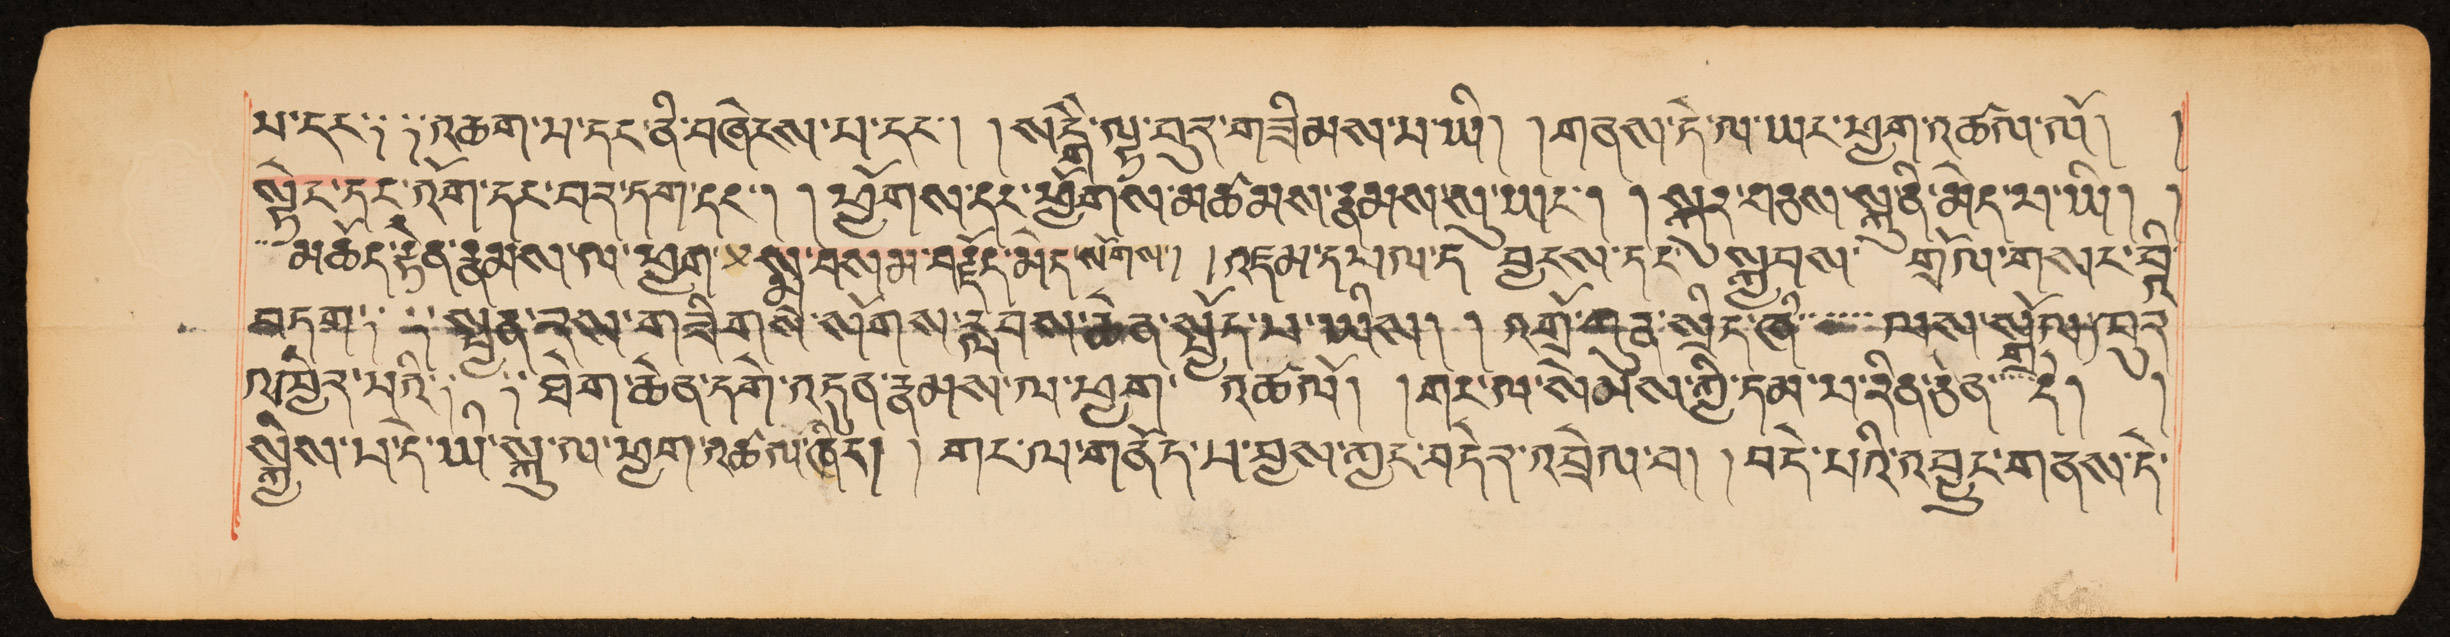 པ་དང་། །འཆག་པ་དང་ནི་བཞེངས་པ་དང་། །སེངྒེ་ལྟ་བུར་གཟིམས་པ་ཡི། །གནས་དེ་ལ་ཡང་ཕྱག་འཚལ་ལོ། །
སྟེང་དང་འོག་དང་བར་དག་དང་། །ཕྱོགས་དང་ཕྱོགས་མཚམས་རྣམས་སུ་ཡང་། །སྐར་བཅས་སྐུ་ནི་མེད་པ་ཡི། །
མཆོད་རྟེན་རྣམས་ལ་ཕྱག × སྨྲ་བསམ་བརྗོད་མེད་སོགས། །འདམ་དཔལ་དབྱངས་དང་སྐྱབས་གྲོལ་གསང་བྷི་
བདག །སྤྱན་རས་གཟིགས་སོགས་རླབས་ཆེན་སྤྱོད་པ་ཡིས། །འགྲོ་ཀུན་སྲིད་ཞི་ལས་སྒྲོལ་བུར་
འཁྱེར་པའི། །ཐེག་ཆེན་དགེ་འདུན་རྣམས་ལ་ཕྱག་འཚལ་ལོ། །གང་ལ་སེམས་ཀྱི་དམ་པ་རིན་ཅེན་དེ། །
སྐྱེས་པ་དེ་ཡི་སྐུ་ལ་ཕྱག་འཚལ་ཞིང་། །གང་ལ་གནོད་པ་བྱས་ཀྱང་བདེར་འབྲེལ་བ། །བདེ་བའི་འབྱུང་གནས་དེ་